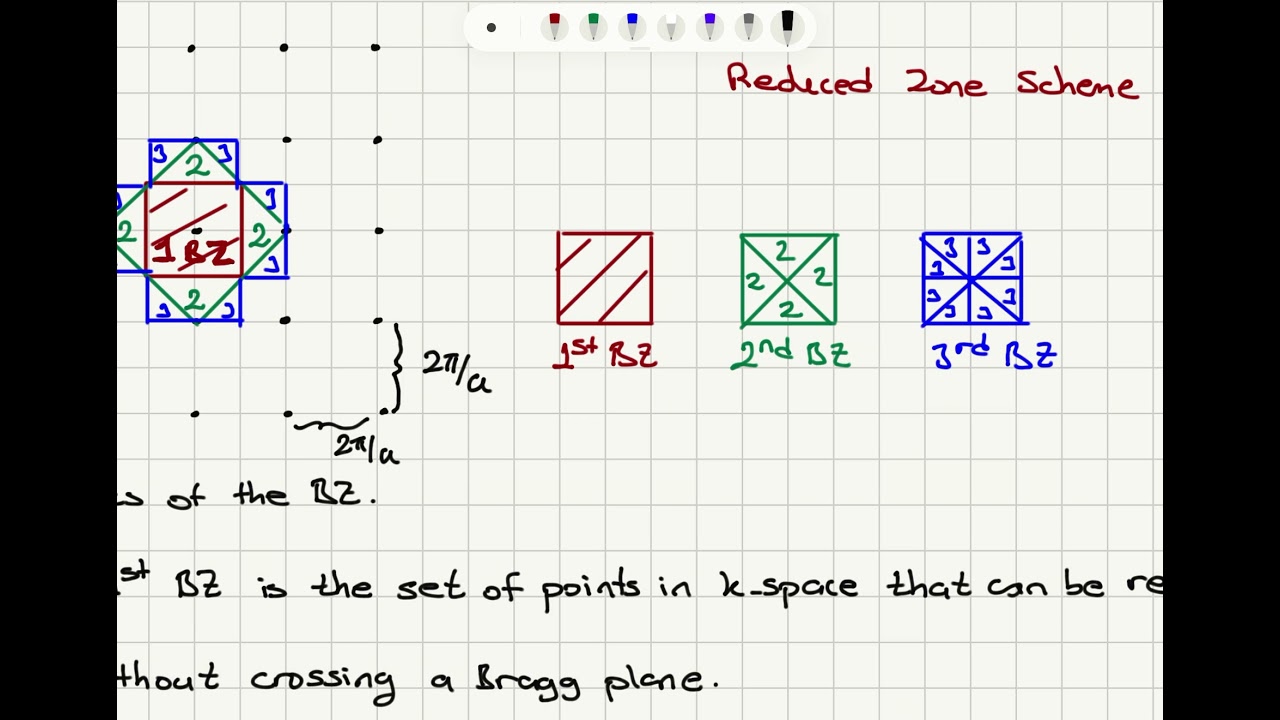 Reduced Zone Scheme
3 2 3
3 3
2 1 BZ 2
3
3 2 3
3 3
3 3
3 3
3 3
2
2 2
2
1st BZ 2nd BZ 3rd BZ
2π/a
2π/a
s of the BZ.
st BZ is the set of points in k-space that can be re
thout crossing a Bragg plane.